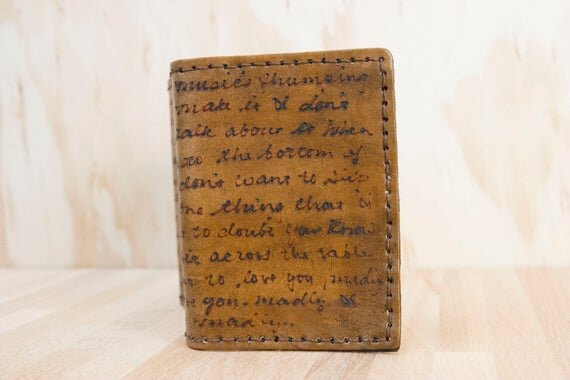 music's thumping
make it I don't
talk about it when
to the bottom of
don't want to
one thing that I
to doubt you know
across the table
to love you, madly
you madly I
madly..